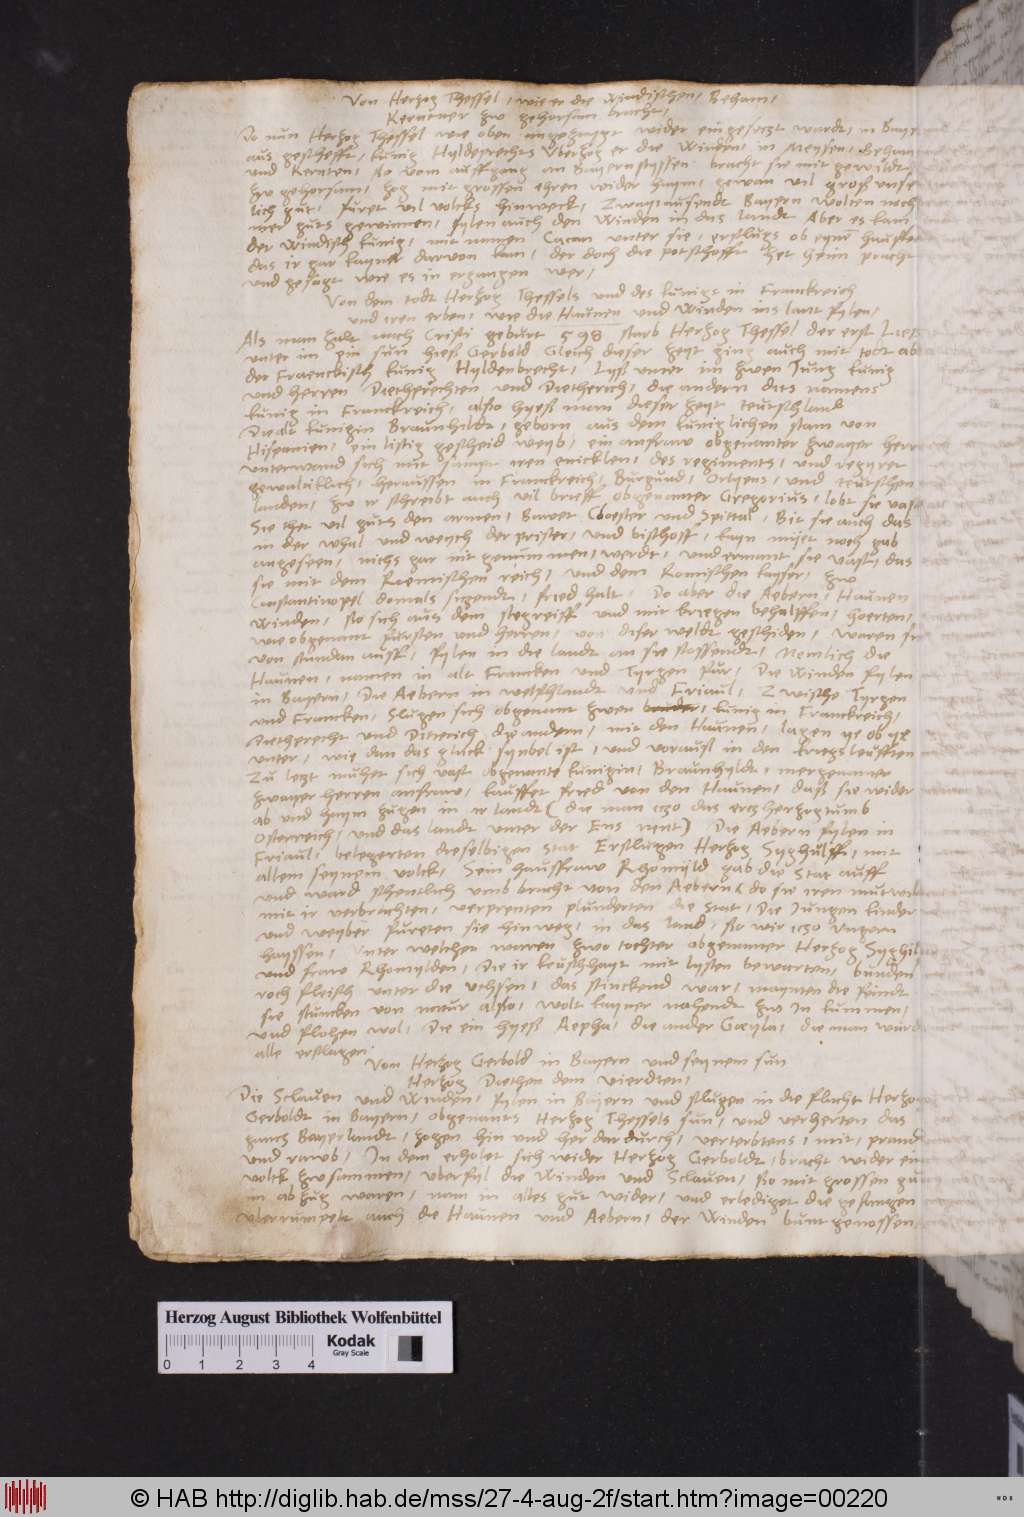 Von Herzog Thessel, wie er die Windischen, Beham,
Kerntner zw gehorsam bracht,
Do nun Herzog Thessel wie oben angezaygt wider eingesetzt wardt, in Bayr
aus geschefft, künig Hyldeprechts Uberzog er die Winden, in Meysen, Beham
und Kernten, so vom auffgang an Bayern stossen bracht sie mit gewildt
zw gehorsam, zog mit grossen ehren wider haym, gewan vil groß unse
lich gut, füret vil volcks hinweck, Zwaytausendt Bayern wolten noch
mer guts gewinnen, fylen auch den Winden in das landt Aber es kam
der Windisch künig, mit namen Cacan unter sie, erschlugs ob eynem hauffen
das ir gar kayner darvon kam, der doch die potschafft het heim pracht
und gesagt wie es in ergangen wer,
Von dem todt Herzog Thessels und des künigs in Franckreich
und iren erben, wie die Haunen und Winden ins lant fylen,
Als man zalt nach Cristi geburt 598 starb Herzog Thessel der erst Lies
unter im ein sün hieß Gerbold Gleich dieser zeyt ging auch mit todt ab
der Franckisch künig Hyldenbrecht, Lyß unter im zwen Jung künig
und herren Dietherechten und Dietherich, die andern dits namens
künig in Franckreich, also hyeß man dieser zeyt teutschland
Die alt künigin Braunhildt, geborn aus dem künglichen stam von
Hispanien, ein listig gescheid weyb, ein anfraw obgenanter zwayer herrn
unterwand sich mit sampt iren enicklen, des regiments, und regyret
gewaltiklich, heraussen in Franckreich, Burgund, Orlyens, und teutschen
landen, zw ir schreibt auch vil brieff obgenanter Gregorius, lobt sie vast
Sie thet vil guts den armen, Bawet Cloester und Spittal, Bit sie auch das
in der whal und weych der prister, und bischoff, kayn mijet noch gab
angeseen, nichs gar nit genummen, werdt, und ermant sie vast, das
sie mit dem Roemischen reich, und dem Romischen kayser, zw
Constantinopel domals sitzendt, fried halt, Do aber die Aebern, Haunen
Winden, so sich aus dem stegreiff und mit kriegen behalffen, hoerten,
wie obgenant fürsten und herren, von diser weldt geschiden, waren sie
von stundan auff, fylen in die landt an sie stossendt, Nemlich die
Haunen, namen in alt Francken und Tyrgen für, Die Winden fylen
in Bayern, Die Aebern in welschlandt und Friaul, Zwische Tyrgen
und Francken, Slugen sich obgenant zwen bruder, künig in Franckreich,
Dietherecht und Dieterich die andern, mit den Haunen, lagen ye ob ye
unter, wie dan das glück synbel ist, und voraus in den kriegsleufften
Zu letzt muhet sich vast obgenante künigin, Braunhyldt, mergenanter
zwayer herren anfraw, kauffet fried von den Haunen, daß sie wider
ab und haym zugen in ir landt (die man itzo das ertzherzogtumb
Osterreich, und das landt unter der Ens nent) Die Aebern fylen in
Friaul, belegerten dieselbigen stat Erschlugen Herzog Syghulff, mit
allem seynem volck, Sein haussfraw Rhomyld gab die stat auff
und ward schentlich umb bracht von den Aebern, do sie iren mutwil
mit ir verbrachten, verprenten plunderten die stat, Die Jungen kinder
und weyber füreten sie hinweg, in das land, so wir itzo Ungern
hayssen, Unter welchen waren zwo tochter obgenanter Herzog Syghil
und fraw Rhomylden, Die ir keuschhayt mit lysten bewarten, bunden
roch fleisch unter die uchsen, das stinckend war, maynten die feindt
sie stuncken von natur also, wolt kayner nahendt zw In kummen,
und flohen wol, Die ein hyeß Aepha, die ander Gayla, die man wurd
alle erschlagen.
Von Herzog Gerbold in Bayern und seynem sun
Herzog Diethen dem vierdten,
Die Sclauen und Winden, fylen in Bayern und slugen in die flucht Herzog
Gerboldt in Bayern, obgenants Herzog Thessels sun, und verherten das
gantz Beyerlandt, zogen hin und her dardurch, verterbtens, mit, prand
und rawb, In dem erholet sich wider Herzog Gerboldt, bracht wider ein
volck zwsammen, uberfyl die Winden und Sclauen, so mit grossen gut
in abzug waren, nam in alles gut wider, und erlediget die gefangen
uberrumpelt auch die Haunen und Aebern, der Winden bunt genossen
Herzog August Bibliothek Wolfenbüttel
Kodak
Gray Scale
0 1 2 3 4
© HAB http://diglib.hab.de/mss/27-4-aug-2f/start.htm?image=00220